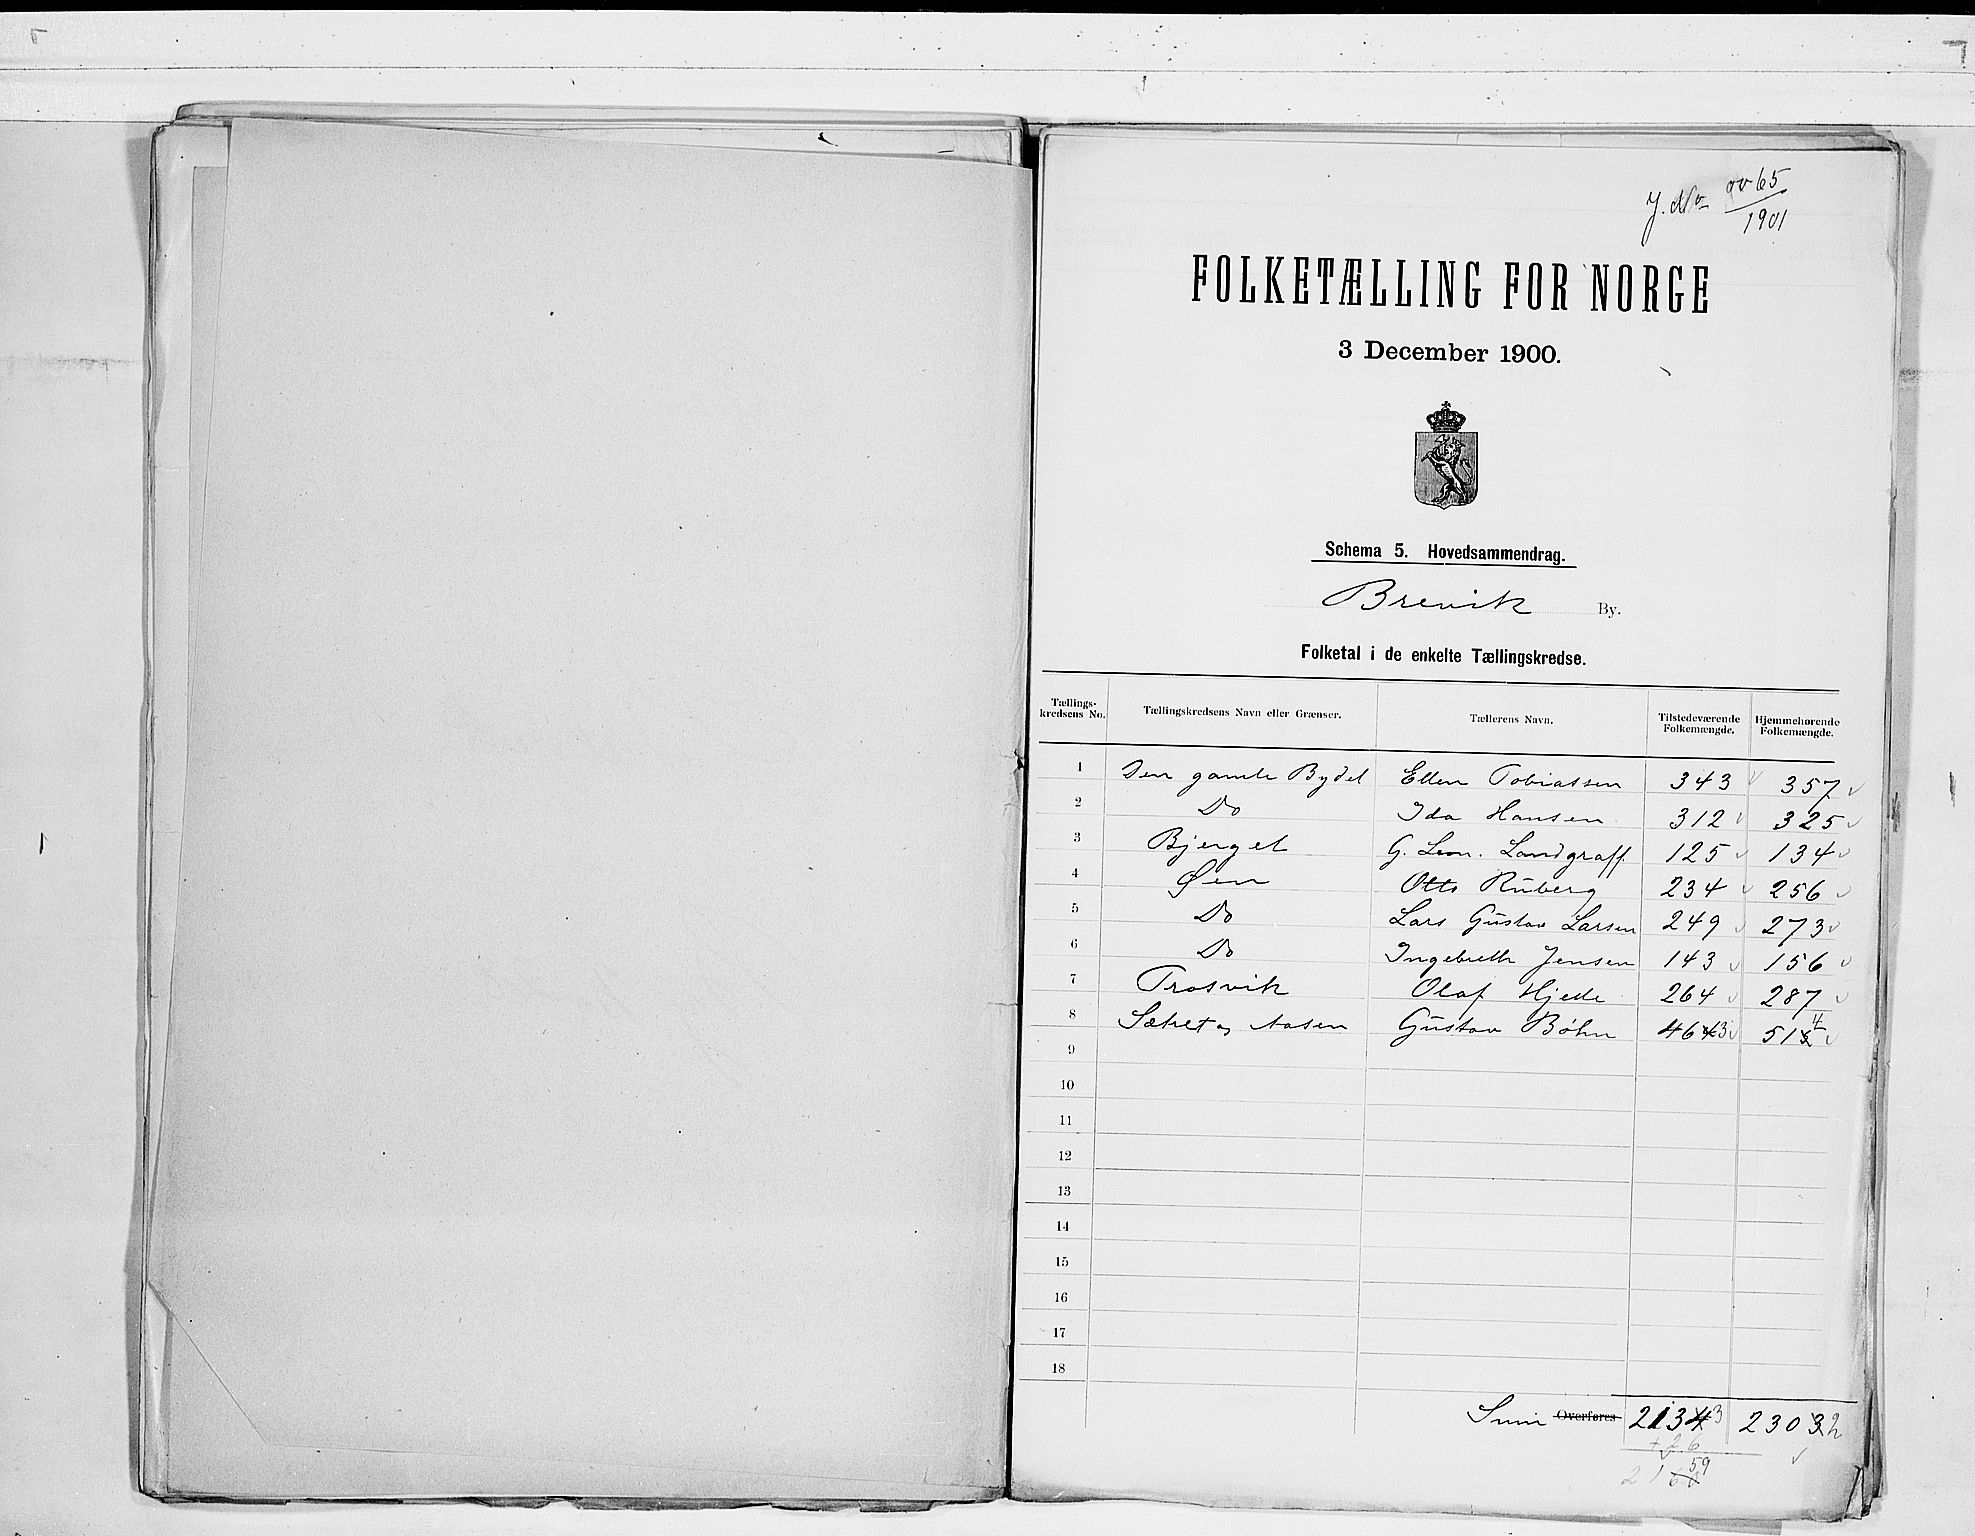 J. No 2065
1901
FOLKETÆLLING FOR NORGE
3 December 1900.
Schema 5. Hovedsammendrag.
Brevik By.
Folketal i de enkelte Tællingskredse.
Tællings-kredsens No. Tællingskredsens Navn eller Grænser. Tællerens Navn. Tilstedeværende Folkemængde. Hjemmehørende Folkemængde.
1 Den gamle Bydel Ellen Tobiassen 343 357
2 Do Ida Hansen 312 325
3 Bjerget G. Leon. Landgraff 125 134
4 Øen Otto Ruberg 234 256
5 Do Lars Gustav Larsen 249 273
6 Do Ingebreth Jensen 143 156
7 Trosvik Olaf Hjelle 264 287
8 Sætret og Aasen Gustav Bøhn 463 514
9
10
11
12
13
14
15
16
17
18
Sum Overføres 2133 2302
+ 26
2159